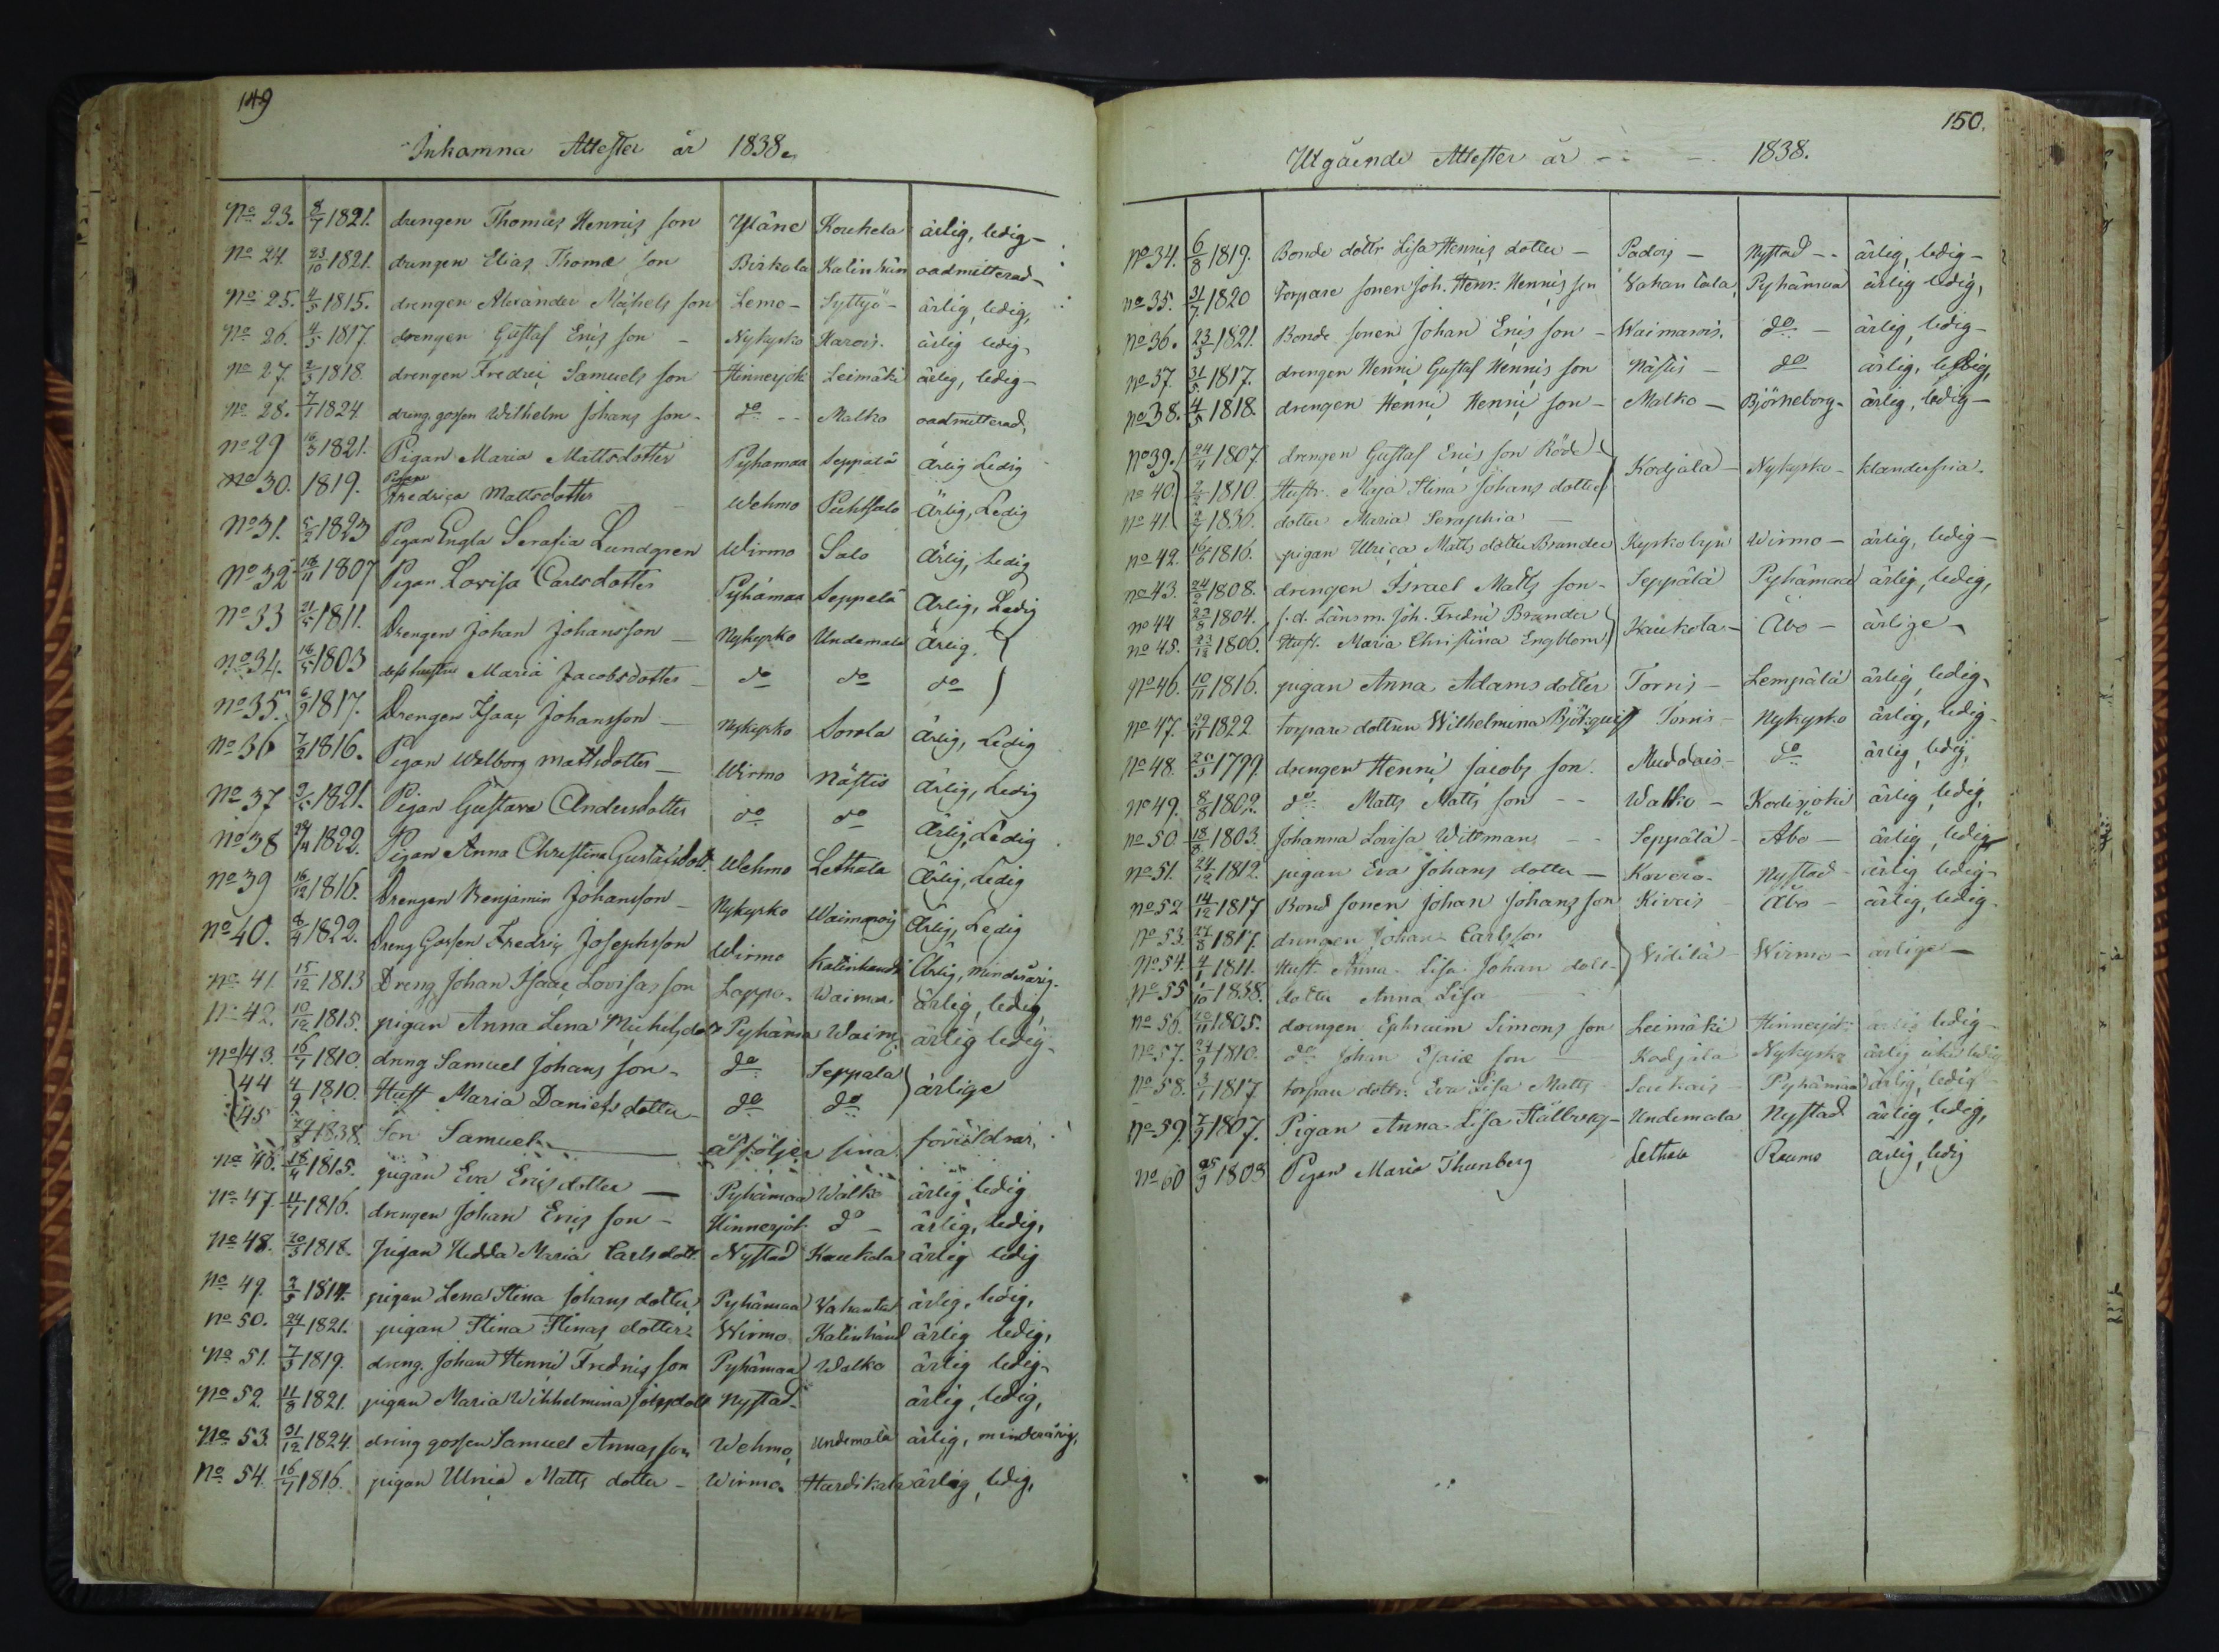 149
Inkomna Attester år 1838.
No 23. 8/7 1821. drengen Thomas Henrics son Yläne Koukela ärlig, ledig
No 24. 23/10 1821. drengen Elias Thomæ son Birkala Kalinhän oadmitterad
No 25. 4/5 1815. drengen Alexander Michels son Lemo Syttyä ärlig, ledig,
No 26. 4/5 1817. drengen Gustaf Erics son Nykyrko Karois. ärlig ledig,
No 27. 2/3 1818. drengen Fredric Samuels son Hinnerjok Leimäki ärlig, ledig
No 28. 7/1 1824 dreng gossen Wilhelm Johans son do Malko oadmitterad,
No 29 16/3 1821. Pigan Maria Mattsdotter Pyhamaa Seppälä Ärlig Ledig
No 30. 1819. Pigan Fredrica Mattsdotter Wehmo Puhtsalo Ärlig, Ledig
No 31. 5/2 1823 Pigan Engla Serafia Lundgren Wirmo Salo Ärlig, Ledig
No 32 18/11 1807 Pigan Lovisa Carlsdotter Pyhämaa Seppälä Ärlig, Ledig
No 33 21/5 1811. Drengen Johan Johansson Nykyrko Undamala Ärlig.
No 34. 16/5 1803 dess hustru Maria Jacobsdotter do do do
No 35. 6/9 1817. Drengen Isaac Johansson Nykyrko Sorola Ärlig, Ledig
No 36 7/2 1816. Pigan Walborg Mattsdotter Wirmo Nästis Ärlig, Ledig
No 37 2/5 1821. Pigan Gustava Andersdotter do do Ärlig, Ledig
No 38 24/4 1822. Pigan Anna Christina Gustafsdott. Wehmo Lethala Ärlig, Ledig
No 39 16/12 1816. Drengen Benjamin Johansson Nykyrko Waimarois Ärlig, Ledig
No 40. 8/4 1822. Dreng Gossen Fredric Josephsson Wirmo Kalinhandi Ärlig, minderårig.
No 41. 15/12 1813 Dreng Johan Isaac Lovisas son Lappo. Waimar. ärlig, ledig,
No 42. 10/12 1815. pigan Anna Lena Michelsdotr Pyhäma Waim. ärlig ledig
No 43. 16/7 1810. dreng Samuel Johans son do Seppala ärlige
44 4/9 1810. Hust Maria Daniels dotter do do
45 29/8 1838. Son Samuel åtföljer sina föräldrar,
No 46. 18/4 1815. pigan Eva Erics dotter Pyhämaa Walko ärlig ledig
No 47. 11/1 1816. drengen Johan Erics son Hinnerjok do ärlig, ledig,
No 48. 20/3 1818. pigan Hedda Maria Carlsdott. Nystad Kaukola ärlig ledig
No 49. 2/5 1814. pigan Lena Stina Johans dotter Pyhämaa Vahantal ärlig, ledig,
No 50. 24/1 1821. pigan Stina Stinas dotter Wirmo Kalinhänd ärlig ledig,
No 51. 7/3 1819. dreng. Johan Henric Fredrics son Pyhämaa Walko ärlig ledig
No 52. 11/8 1821. pigan Maria Wilhelmina dott Nystad ärlig, ledig,
No 53. 31/12 1824. dreng gossen Samuel Annas son Wehmo Undemala ärlig, minderårig,
No 54. 16/7 1816. pigan Ulrica Matts dotter Wirmo Hardikala ärlig, ledig,
150.
Utgående Attester år 1838.
No 34. 6/8 1819. Bonde dottr Lisa Henrics dotter Padois Nystad ärlig, ledig
No 35. 31/7 1820 Torpare sonen Joh. Henr. Henrics son Vahantala, Pyhämaa ärlig ledig,
No 36. 23/3 1821. Bonde sonen Johan Erics son Waimarois. do ärlig, ledig
No 37. 31/5 1817. drengen Henric Gustaf Henrics son Nästis do ärlig, ledig,
No 38. 4/5 1818. drengen Henric Henric son Malko Björneborg ärlig, ledig
No 39. 24/4 1807. drengen Gustaf Erics son Röde Kodjala Nykyrko klanderfria.
No 40. 2/2 1810. Hustr. Maja Stina Johans dotter
No 41. 2/7 1836. dotter Maria Seraphia
No 42. 16/7 1816. pigan Ulrica Matts dotter Brander Kyrkobyn Wirmo ärlig, ledig
No 43. 24/2 1808. drengen Israel Matts son Seppälä Pyhämaa ärlig, ledig,
No 44 22/8 1804. f.d. Länsm. Joh. Fredric Brander Kaukola Åbo ärlige
No 45. 23/12 1806. Hust. Maria Christina Engblom
No 46. 10/11 1816. pigan Anna Adams dotter Torris Lempälä ärlig, ledig,
No 47. 29/11 1822. torpare dottren Wilhelmina Björkqvist Torris Nykyrko ärlig, ledig
No 48. 20/3 1799. drengen Henric Jacobs son. Muddais do ärlig, ledig,
No 49. 8/8 1802. do Matts Matts son Walko Kodisjoki ärlig, ledig,
No 50. 18/8 1803. Johanna Lovisa Wittman Seppälä Åbo ärlig, ledig
No 51. 24/12 1812. pigan Eva Johans dotter Kavero Nystad ärlig ledig
No 52 14/12 1817 Bond sonen Johan Johans son Kivais Åbo ärlig, ledig
No 53. 27/8 1817. drengen Johan Carlsson Vidilä Wirmo ärlige
No 54. 4/1 1811. Hust. Anna Lisa Johan dott
No 55 1/10 1838. dotter Anna Lisa
No 56. 20/11 1805. drengen Ephraim Simons son Leimäki Hinnerjok ärlig ledig
No 57. 24/9 1810. do Johan Isaics son Kodjala Nykyrko ärlig ledig
No 58. 3/1 1817. torpare dottr. Eva Lisa Matts Saukais Pyhämaa ärlig, ledig
No 59. 7/9 1807. Pigan Anna Lisa Hällberg Undemala Nystad ärlig ledig,
No 60 25/9 1803 Pigan Maria Thunberg Lethala Raumo ärlig, ledig